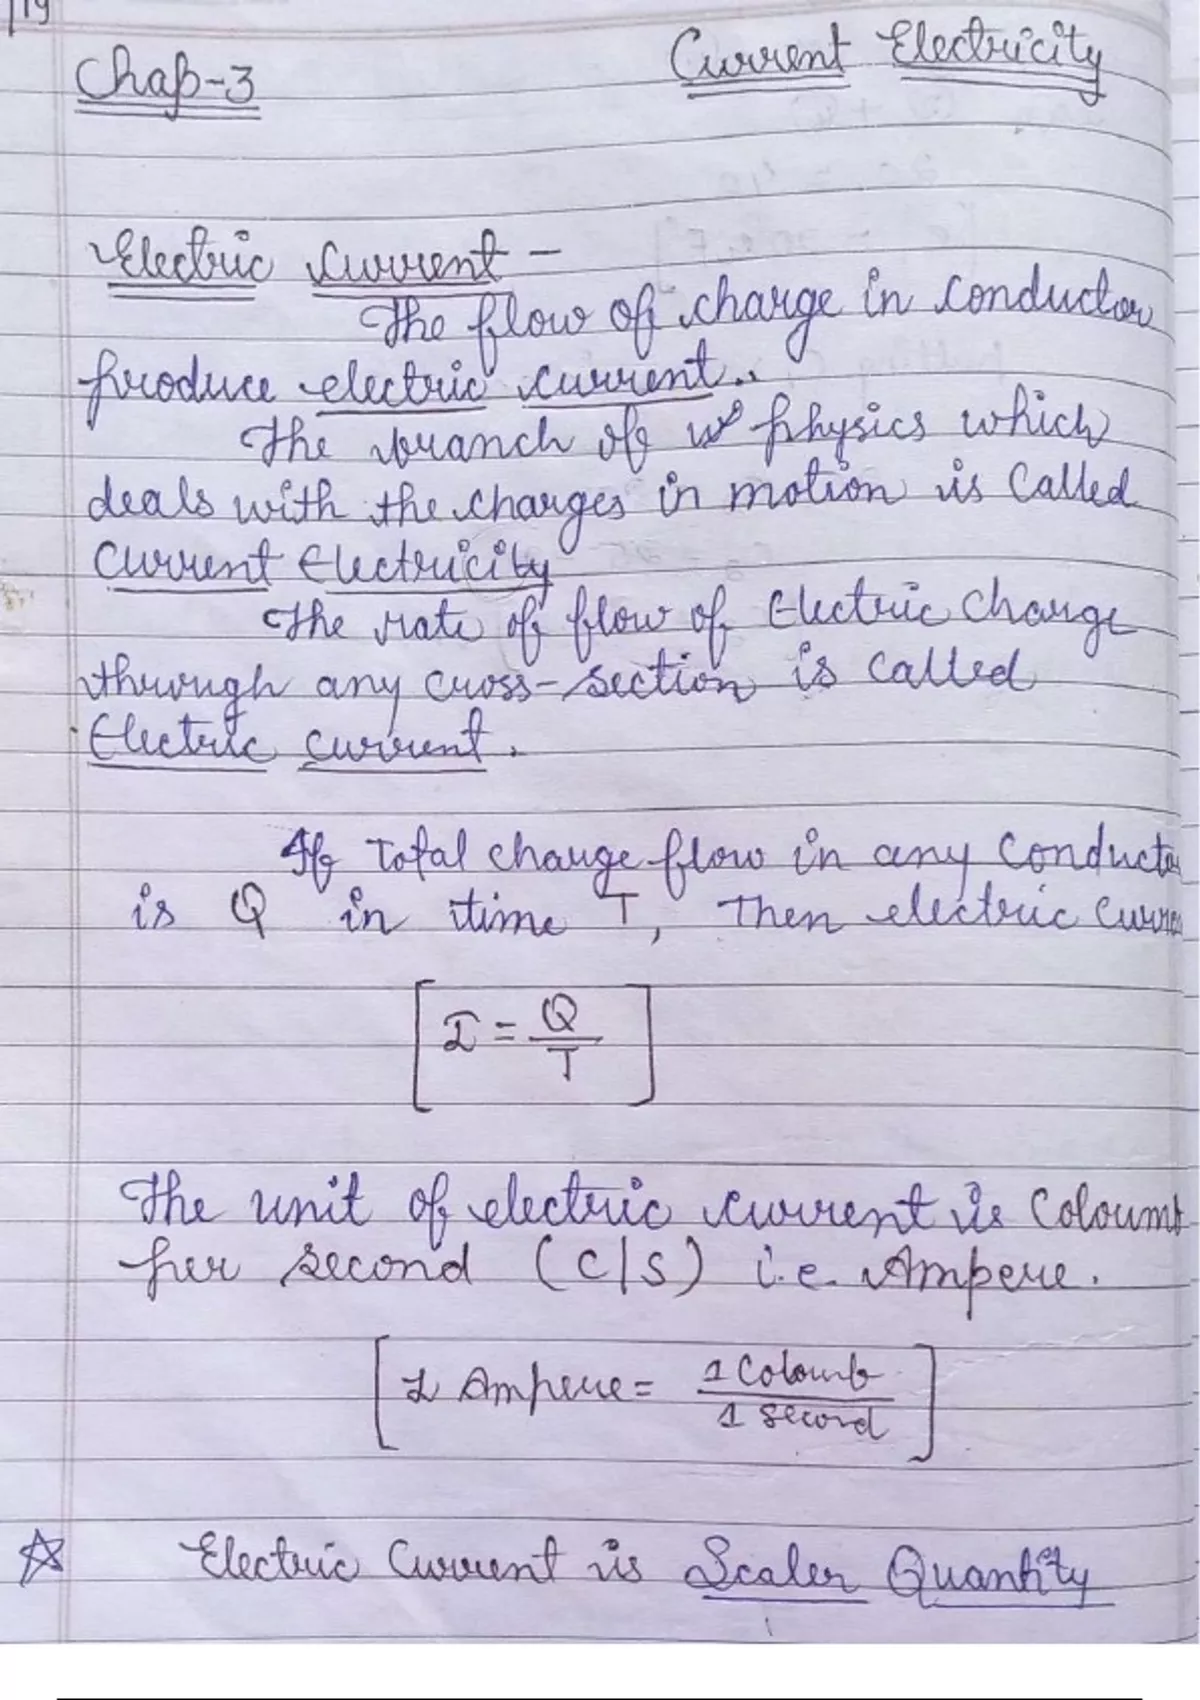 Chap-3
Current Electricity
Electric Current -
The flow of charge in conductor
produce electric current..
The branch of physics which
deals with the charges in motion is Called
Current Electricity
The rate of flow of Electric Charge
through any cross-section is called
Electric current.
If Total charge flow in any Conducto
is Q in time T, Then electric Curre
[ I = Q / T ]
The unit of electric current is Coloumb
per second (C/S) i.e. Ampere.
[ 1 Ampere = 1 Coloumb / 1 second ]
☆ Electric Current is Scaler Quantity